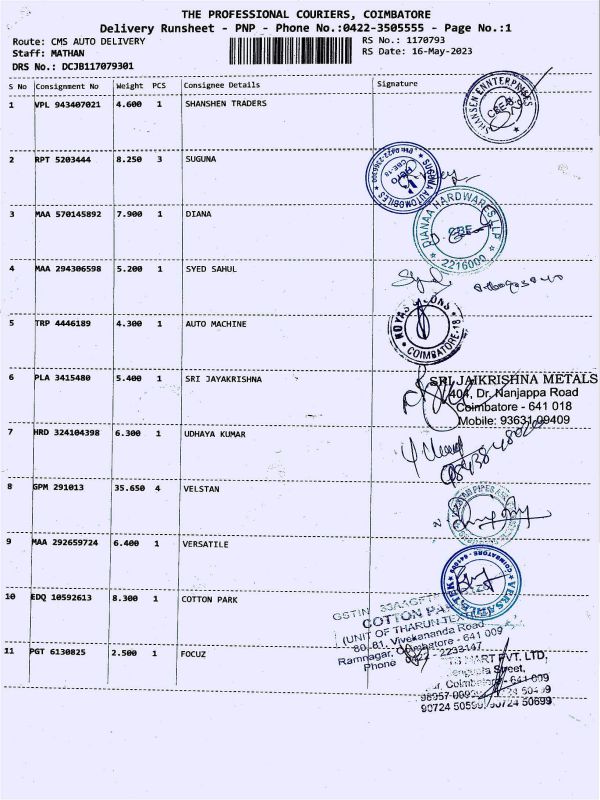 THE PROFESSIONAL COURIERS, COIMBATORE
Delivery Runsheet - PNP - Phone No.:0422-3505555 - Page No.:1
Route: CMS AUTO DELIVERY
RS No.: 1170793
Staff: MATHAN
RS Date: 16-May-2023
DRS No.: DCJB117079301
S No Consignment No Weight PCS Consignee Details Signature
1 VPL 943407021 4.600 1 SHANSHEN TRADERS
SHANSEN ENNTERPRISES
CBE-18
2 RPT 5203444 8.250 3 SUGUNA
SUGUNA AUTOMOBILES
CBE-18
3 MAA 570145892 7.900 1 DIANA
DIANAA HARDWARES LLP
CBE
2216000
4 MAA 294306598 5.200 1 SYED SAHUL
5 TRP 4446189 4.300 1 AUTO MACHINE
COIMBATORE-18
6 PLA 3415480 5.400 1 SRI JAYAKRISHNA
SRI JAIKRISHNA METALS
404, Dr. Nanjappa Road
Coimbatore - 641 018
Mobile: 93631 09409
7 HRD 324104398 6.300 1 UDHAYA KUMAR
8 GPM 291013 35.650 4 VELSTAN
9 MAA 292659724 6.400 1 VERSATILE
COIMBATORE
10 EDQ 10592613 8.300 1 COTTON PARK
GSTIN
COTTON
(UNIT OF THARUN
80, 81, Vivekananda Road
Ramnagar, Coimbatore - 641 009
Phone 0422 - 2233147
11 PGT 6130825 2.500 1 FOCUZ
MART PVT. LTD,
Street,
641 009
90724 50599, 90724 50699